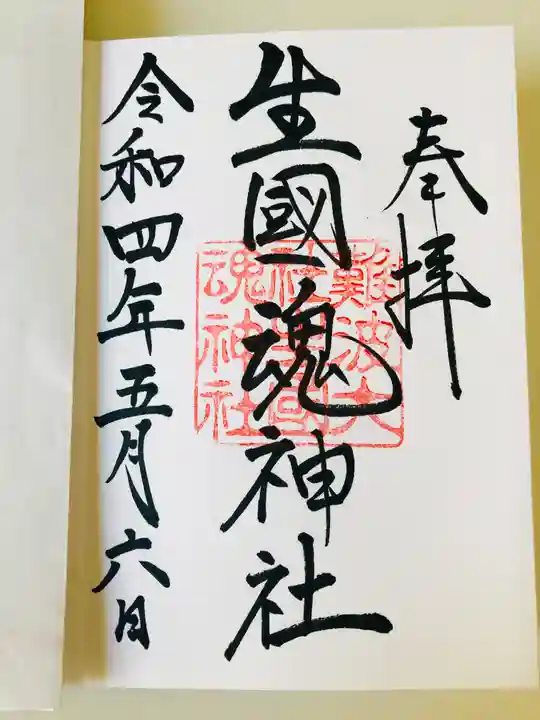 奉拝
生國魂神社
難波大
社生國
魂神社
令和四年五月六日